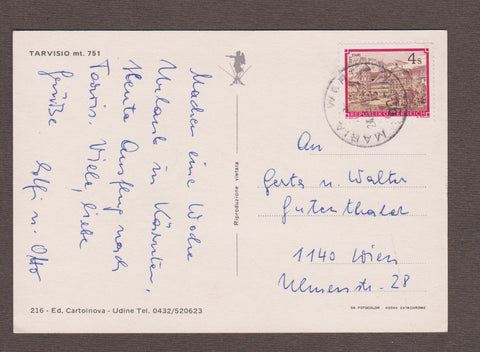 TARVISIO mt. 751
Machen eine Woche
Urlaub in Kärnten,
Heute Ausflug nach
Tarvis. Viele, liebe
Grüße
u. Otto
216 - Ed. Cartoinova - Udine Tel. 0432/520623
Riproduzione vietata
4s
REPUBLIK ÖSTERREICH
MARIA
An
Gerta u. Walter
Gutenthaler
1140 Wien
Ulmenstr. 28
DA FOTOCOLOR KODAK EKTACHROME